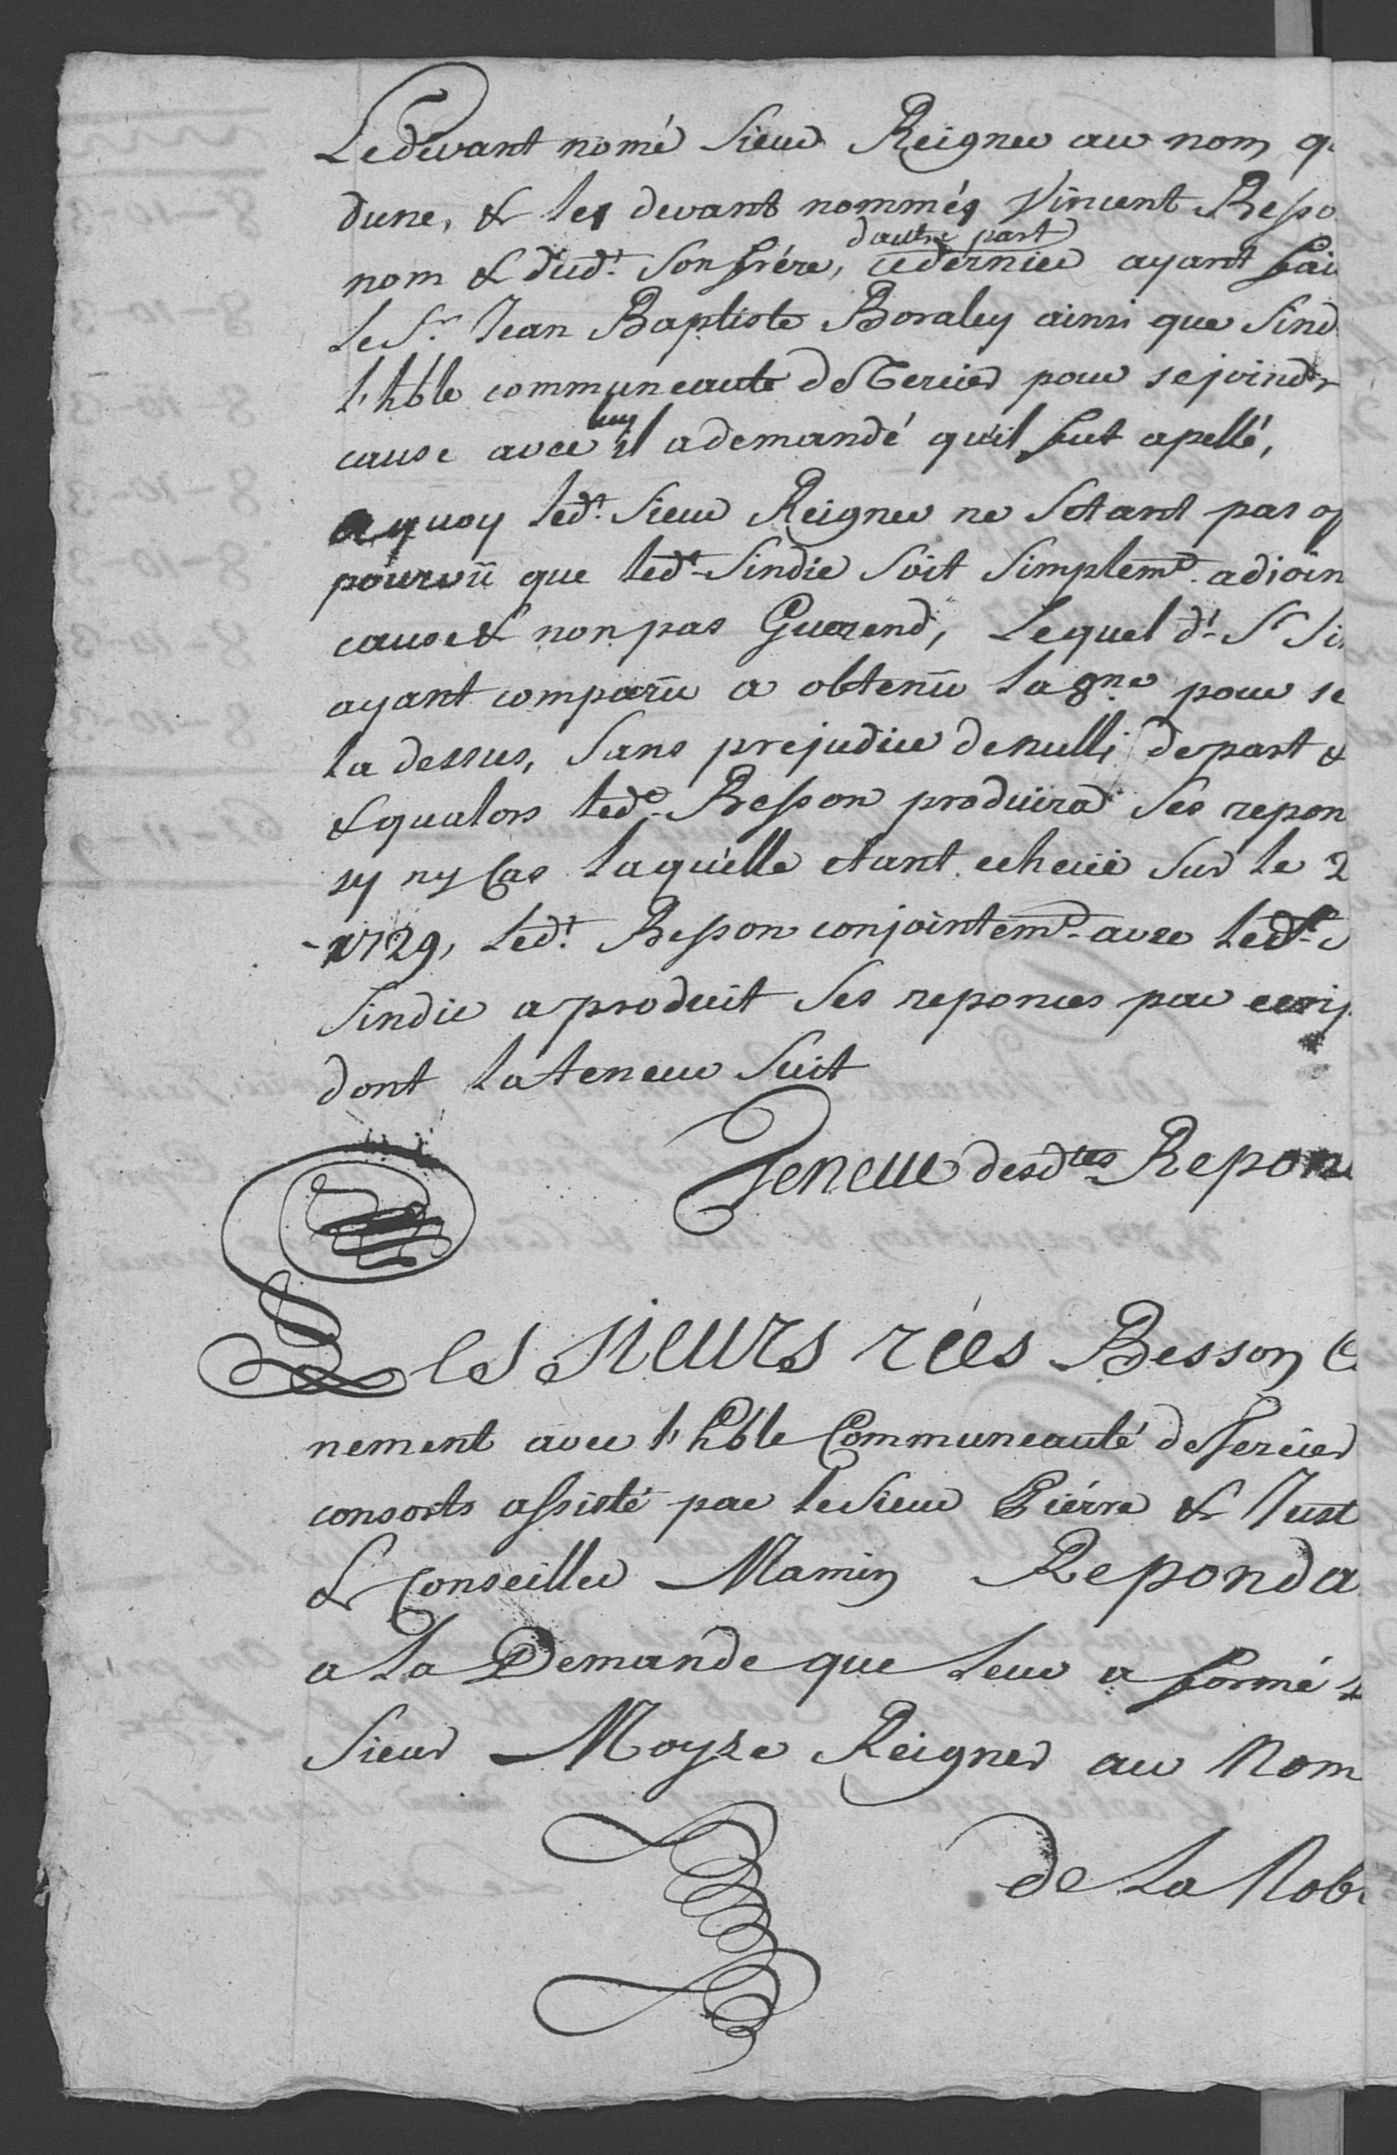 Le devant nomé Sieur Reigner au nom q
dune, & les devant nommés Vincent Besso
nom & dud.t Son frére, d'autre part ce dernier ayant fai
le S.r Jean Baptiste Boraley ainsi que Sind
l'hble communeauté de Tercier pour se joindr
cause avec luy il a demandé qu'il fut apellé,
a quoy led.t Sieur Reigner ne Setant pas op
pourvü que led.t Sindic Soit Simplem.t adjoin
cause & non pas Guarend, Lequel d.t S.r Si
ayant comparü a obtenü la 8.ne pour se
la dessus, Sans prejudice de nulli de part &
& qualors led.t Besson produira Ses repon
sy ny Cas laquelle etant echeüe Sur le 2
1729, led.t Besson conjointem.t avec led.t S
Sindic a produit Ses reponces par ecrip
dont la teneur Suit
Teneur desd.tes Repon
Les sieurs rées Besson C
nement avec l'hble Communeauté de Tercier
consorts assisté par le Sieur Piérre & Just
& Conseiller Mamin Reponda
a la Demande que leur a formé l
Sieur Moyse Reigner au Nom
de La Nob